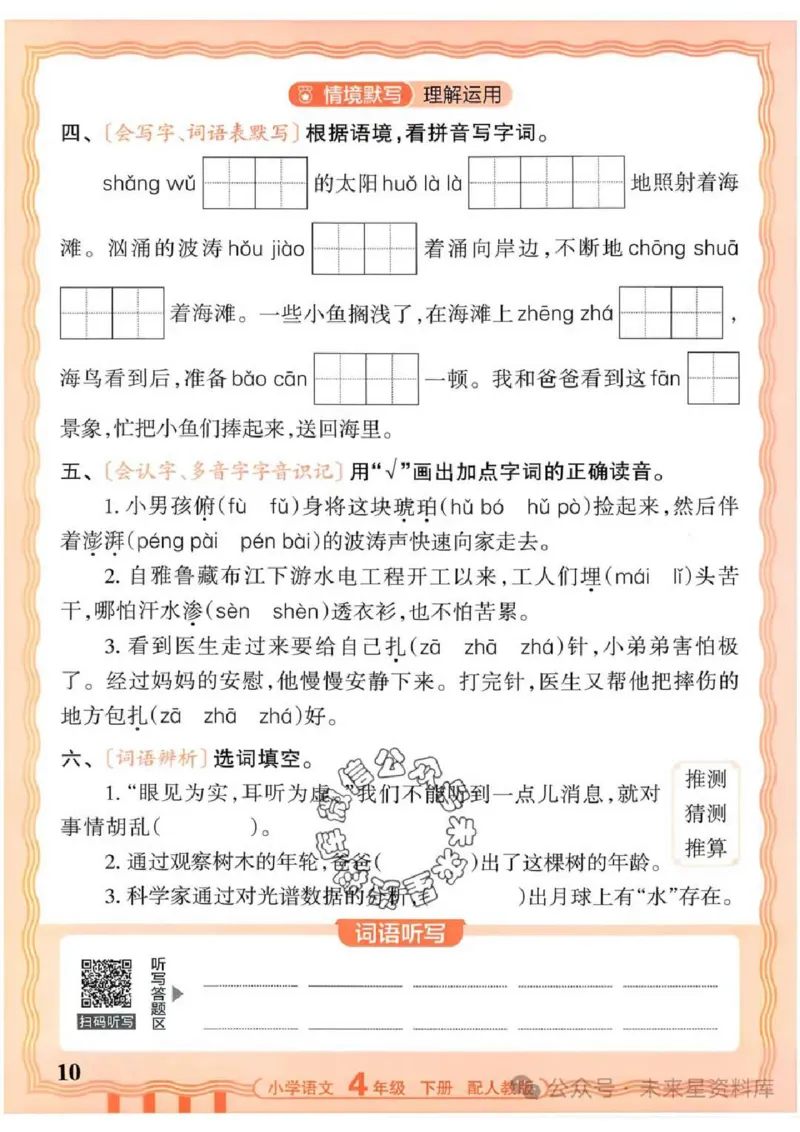 情境默写 理解运用
四、〔会写字、词语表默写〕根据语境,看拼音写字词。
shǎng wǔ 的太阳 huǒ là là 地照射着海
滩。汹涌的波涛 hǒu jiào 着涌向岸边,不断地 chōng shuā
着海滩。一些小鱼搁浅了,在海滩上 zhēng zhá ,
海鸟看到后,准备 bǎo cān 一顿。我和爸爸看到这 fān
景象,忙把小鱼们捧起来,送回海里。
五、〔会认字、多音字字音识记〕用“√”画出加点字词的正确读音。
1. 小男孩俯(fù fǔ)身将这块琥珀(hǔ bó hǔ pò)捡起来,然后伴
着澎湃(péng pài pén bài)的波涛声快速向家走去。
2. 自雅鲁藏布江下游水电工程开工以来,工人们埋(mái lǐ)头苦
干,哪怕汗水渗(sèn shèn)透衣衫,也不怕苦累。
3. 看到医生走过来要给自己扎(zā zhā zhá)针,小弟弟害怕极
了。经过妈妈的安慰,他慢慢安静下来。打完针,医生又帮他把摔伤的
地方包扎(zā zhā zhá)好。
六、〔词语辨析〕选词填空。
1. “眼见为实,耳听为虚。”我们不能听到一点儿消息,就对
事情胡乱( )。
2. 通过观察树木的年轮,爸爸( )出了这棵树的年龄。
3. 科学家通过对光谱数据的分析,( )出月球上有“水”存在。
推测
猜测
推算
词语听写
扫码听写
听写答题区
10
小学语文 4年级 下册 配人教版
公众号·未来星资料库